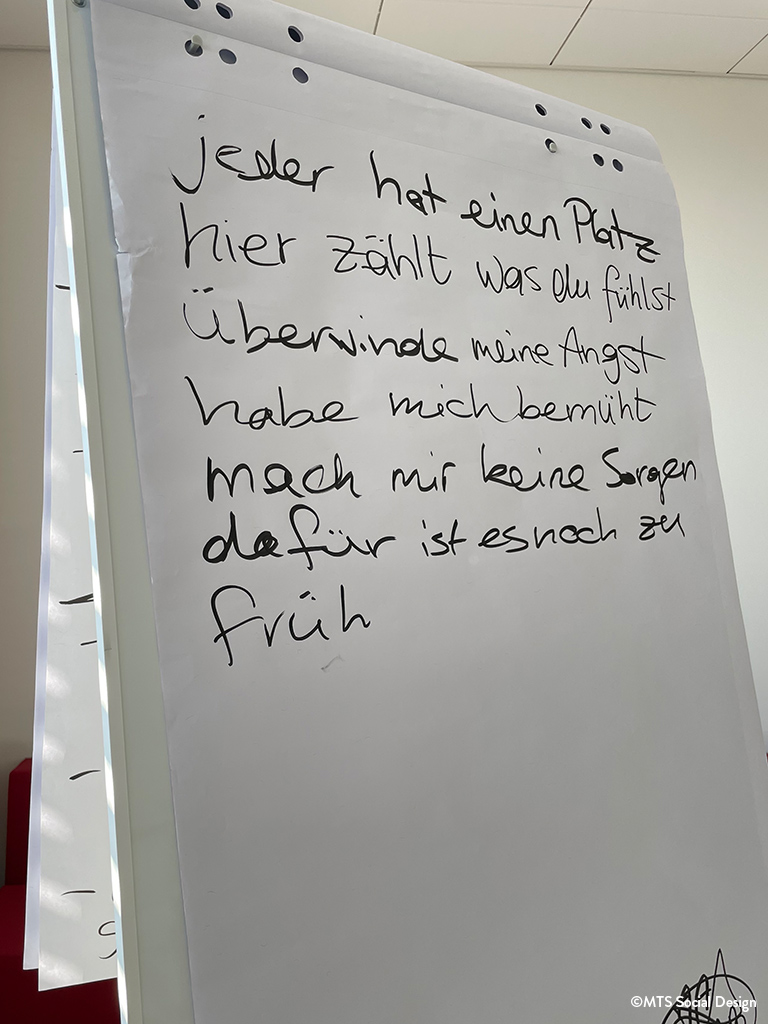 jeder hat einen Platz
hier zählt was du fühlst
Überwinde meine Angst
habe mich bemüht
mach mir keine Sorgen
dafür ist es noch zu
früh
©MTS Social Design